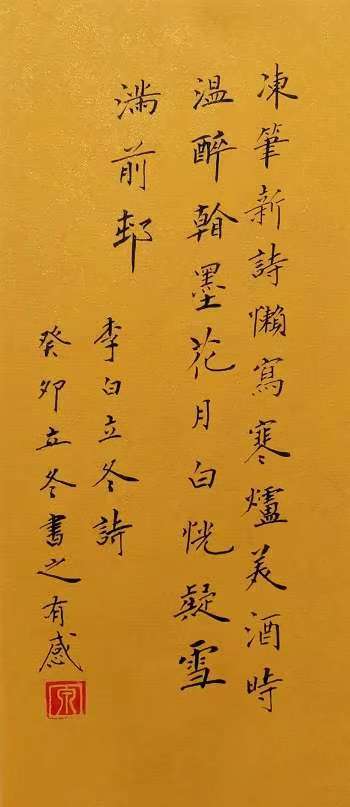 凍筆新詩懶寫寒爐美酒時
温醉翰墨花月白恍凝雪
滿前邨
李白立冬詩
癸卯立冬書之有感